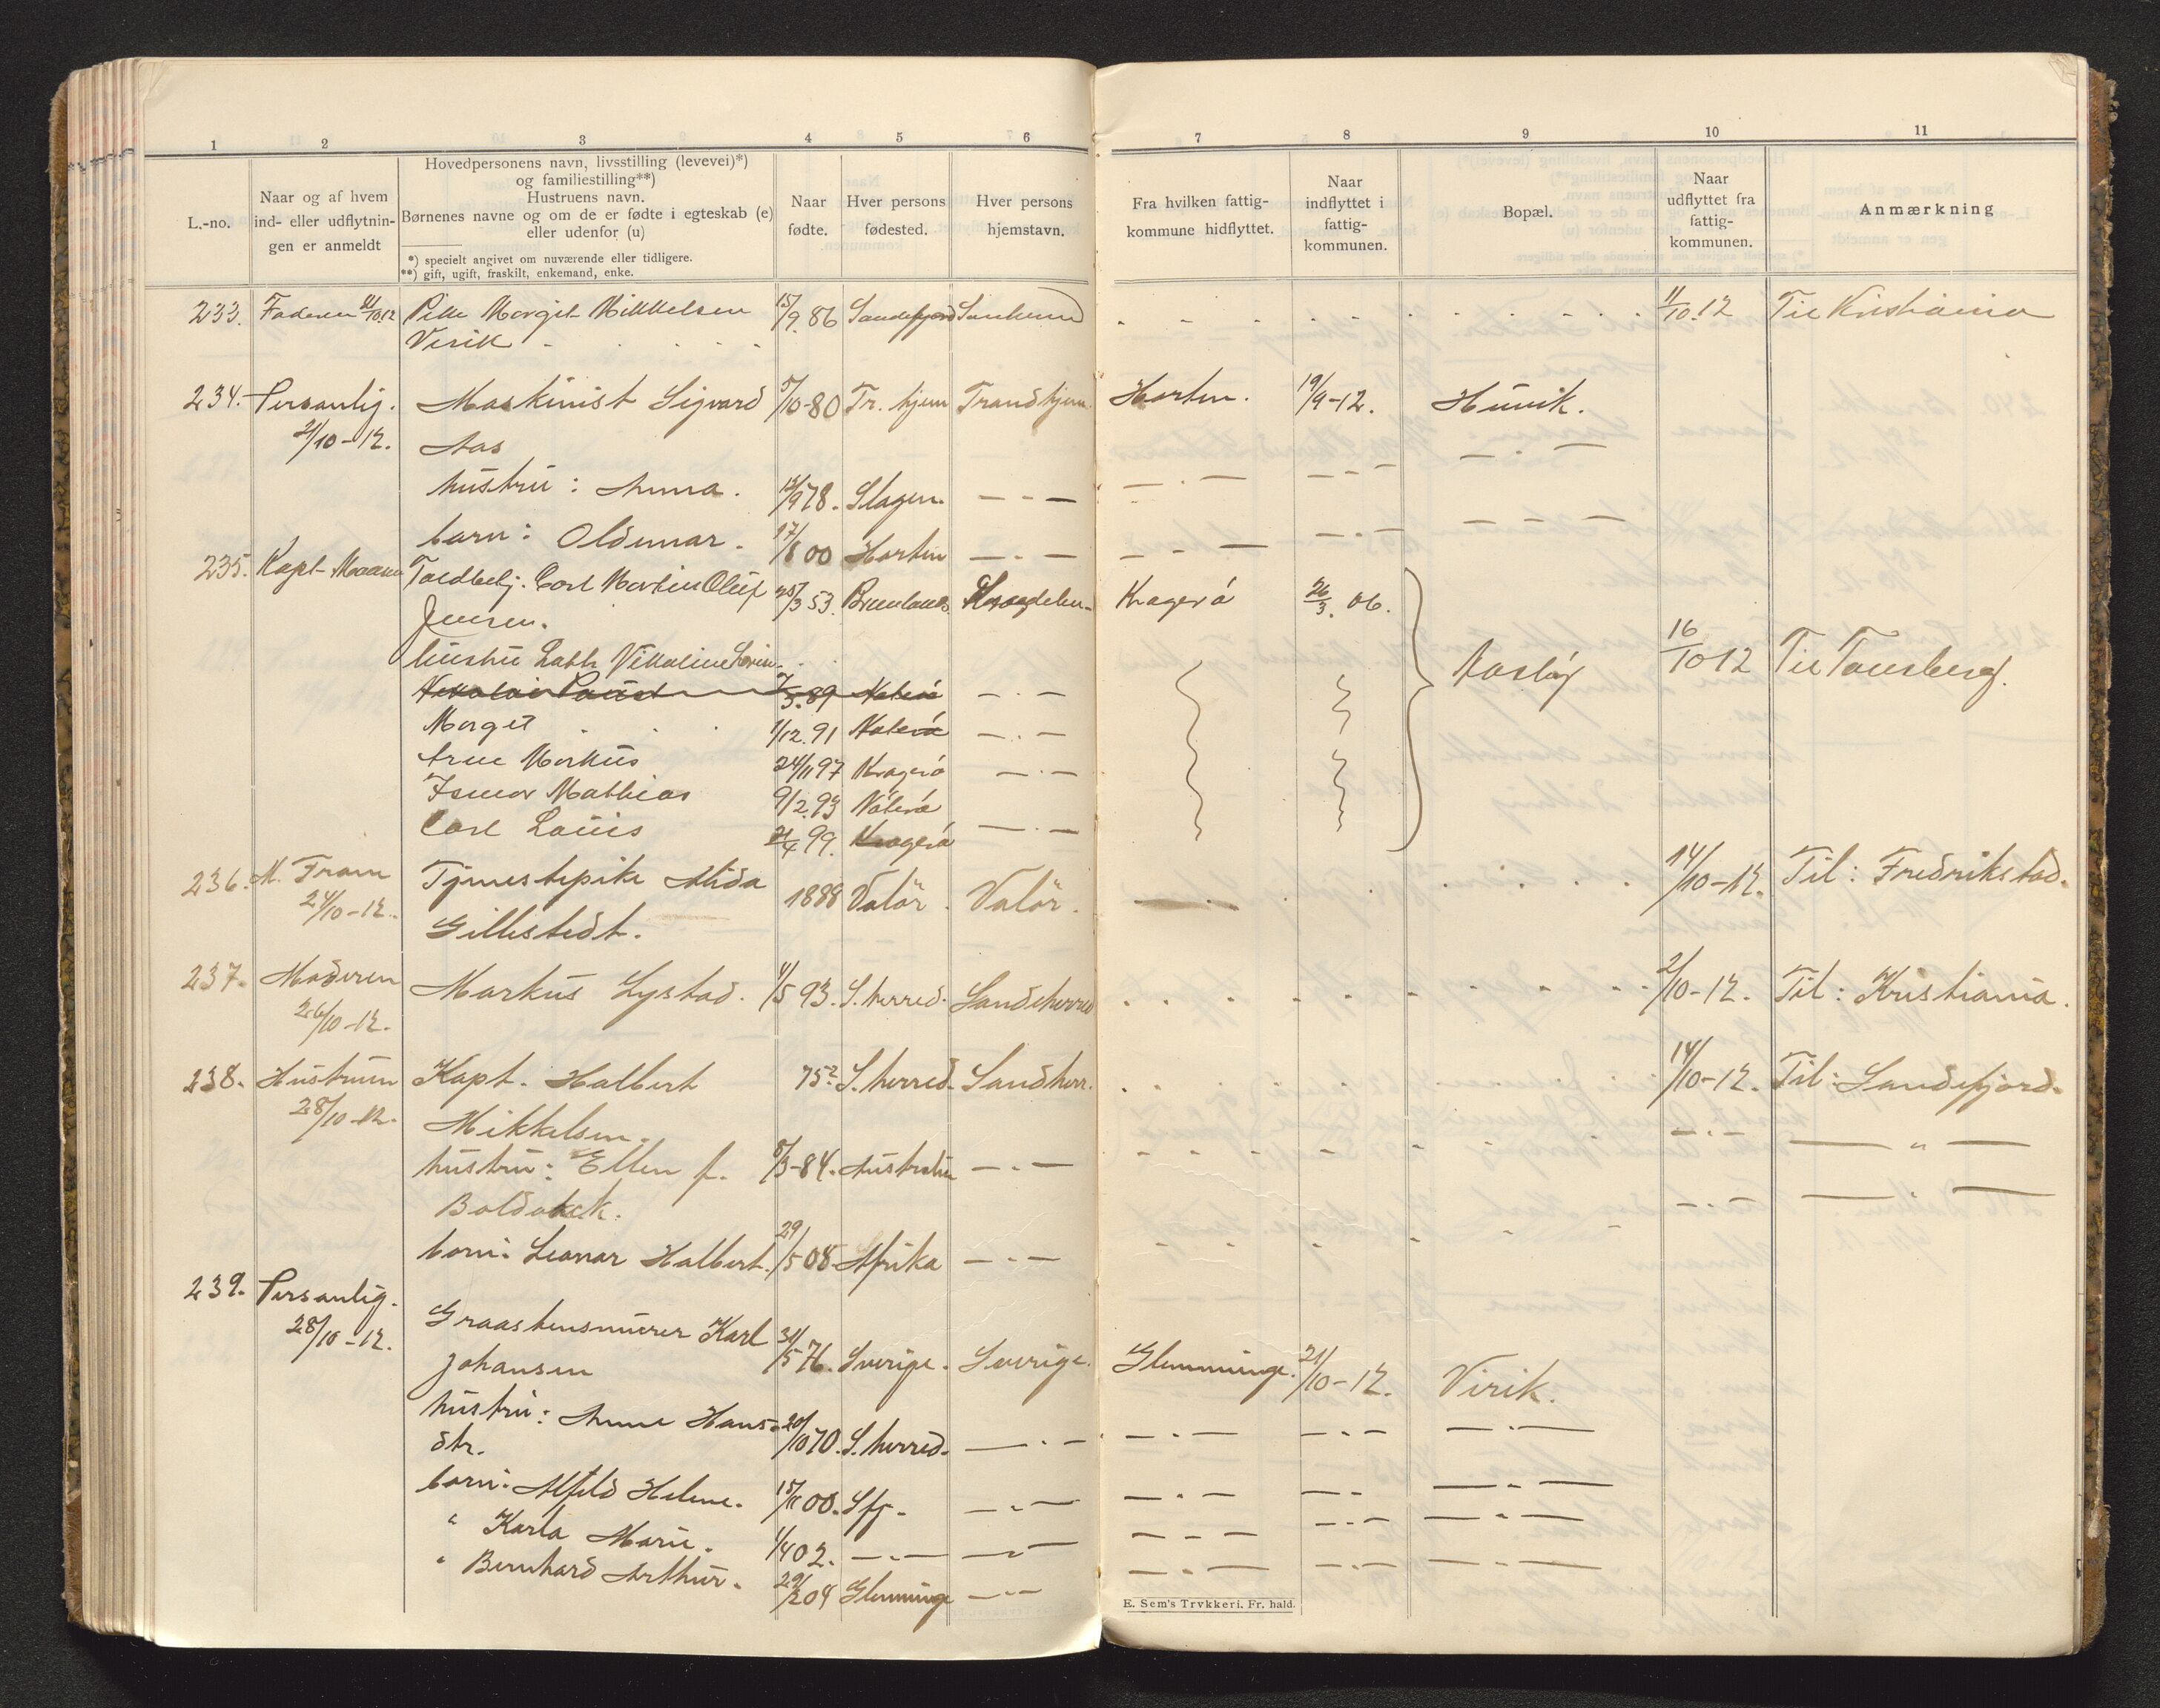 1 2 3 4 5 6 7 8 9 10 11
L.-no.
Naar og af hvem
ind- eller udflytnin-
gen er anmeldt
Hovedpersonens navn, livsstilling (levevei)*)
og familiestilling**)
Hustruens navn.
Børnenes navne og om de er fødte i egteskab (e)
eller udenfor (u)
*) specielt angivet om nuværende eller tidligere.
**) gift, ugift, fraskilt, enkemand, enke.
Naar
fødte.
Hver persons
fødested.
Hver persons
hjemstavn.
Fra hvilken fattig-
kommune hidflyttet.
Naar
indflyttet i
fattig-
kommunen.
Bopæl.
Naar
udflyttet fra
fattig-
kommunen.
Anmærkning
233. Faderen 11/10.12 Pike Margit Mikkelsen 15/9.86 Sandefjord 11/10.12 Til Kristiania
Virik
234. Personlig. Maskinist Sigvard 5/10-80 Tr. hjem Trondhjem. Horten. 19/9-12. Hunvik.
21/10-12. Aas
hustru: Anna. 12/9 78. Slagen. — - — — . — — - - — . —
barn: Oldemar. 17/8 00 Horten — . — — - — — . — — — —
235. Kapt. Toldbetj. Carl Martin Oluf 25/3 53. Kragerø 26/3. 06.
Jensen.
hustru
Nikolai 7/3.89 Nøterø — . — 16/10 12 Til Tønsberg.
Margit 1/12.91 Nøterø — . —
Arne Markus 24/11 97 Kragerø — . —
Mathias 9/2.93 Nøterø
Carl Louis 21/4 99. Kragerø — . —
236. M. Fram Tjenestepike Alida 1888 Valör. Valör. 14/10-12. Til: Fredrikstad.
24/10-12. Gillestedt.
237. Moderen Markus Lystad. 4/5 93. S. herred. Sandeherred 2/10-12. Til: Kristiania.
26/10-12.
238. Hustruen Kapt. Halbert 75? S. herred. Sandherr. 14/10-12. Til: Sandefjord.
28/10-12. Mikkelsen.
hustru: Ellen f. 8/3-84. Australien — - — — . — — " —
barn: Leonar Halbert. 29/5 08. Afrika — - — — . — — " —
239. Personlig.
28/10-12. Graastensmurer Karl 31/5 76. Sverige. Sverige. Glemminge. 21/10-12. Virik.
Johansen
hustru: Anne Hans- 20/10 70. S. herred. — . — — . — — . — — . —
dtr.
barn: Alfild Helene. 15/11 00. Sfj. — . — — . — — . — — . —
" Karla Marie. 1/4 02. — . — — " — — . — — . — — " —
" Bernhard Arthur. 29/2 04 Glemminge — . — — . — — . — — . —
E. Sem's Trykkeri. Fr.hald.